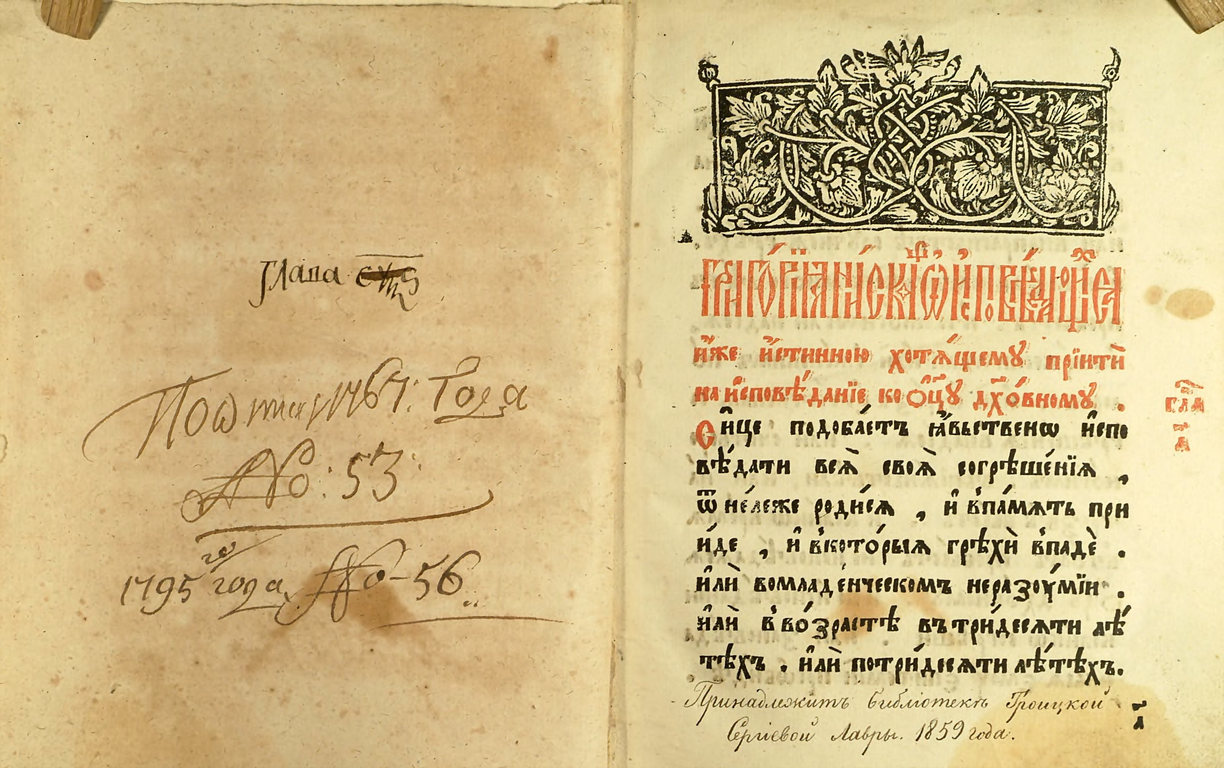 глава
По описи 1767: Года
No: 53:
1795го года No-56
иже истинною хотѧщемꙋ прїити
на исповѣданїе ко ѻц҃ꙋ дх҃овномꙋ .
Сице подобаетъ ꙗвьственѡ испо
вѣдати всѧ своѧ согрѣшенїѧ ,
ѿнележе родисѧ , и впамѧть при
иде , и вкоторыѧ грѣхи впаде .
или вомладенческомъ неразꙋмїи .
или ввозрастѣ вътридесѧти лѣ
тѣхъ . или потридесѧти лѣтѣхъ.
глава
а҃
Принадлежитъ библіотекѣ Троицкой
Сергіевой Лавры. 1859 года.